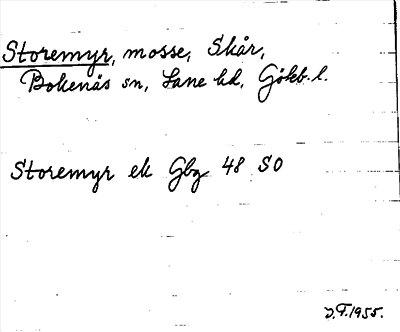 Storemyr, mosse, Skår,
Bokenäs sn, Lane hd, Götb. l.
Storemyr ek Gbg 48 SO
J.F. 1955.